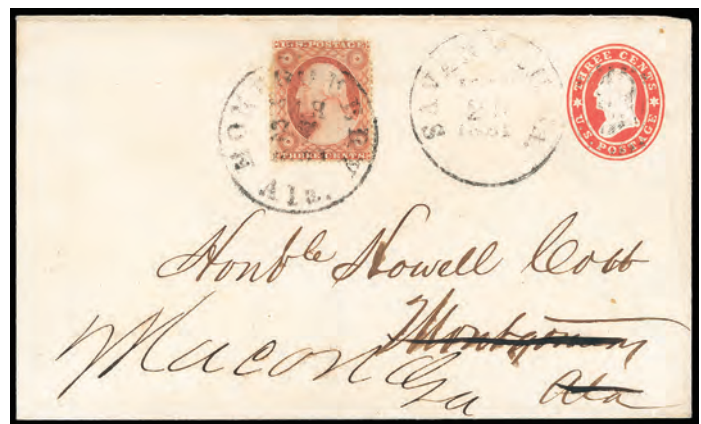 U.S. POSTAGE
THREE CENTS
MONTGOMERY
18
Ala.
SAVANNAH
Ga.
1861
THREE CENTS
U.S. POSTAGE
Honble Howell Cobb
Montgomery
Ala
Macon
Ga